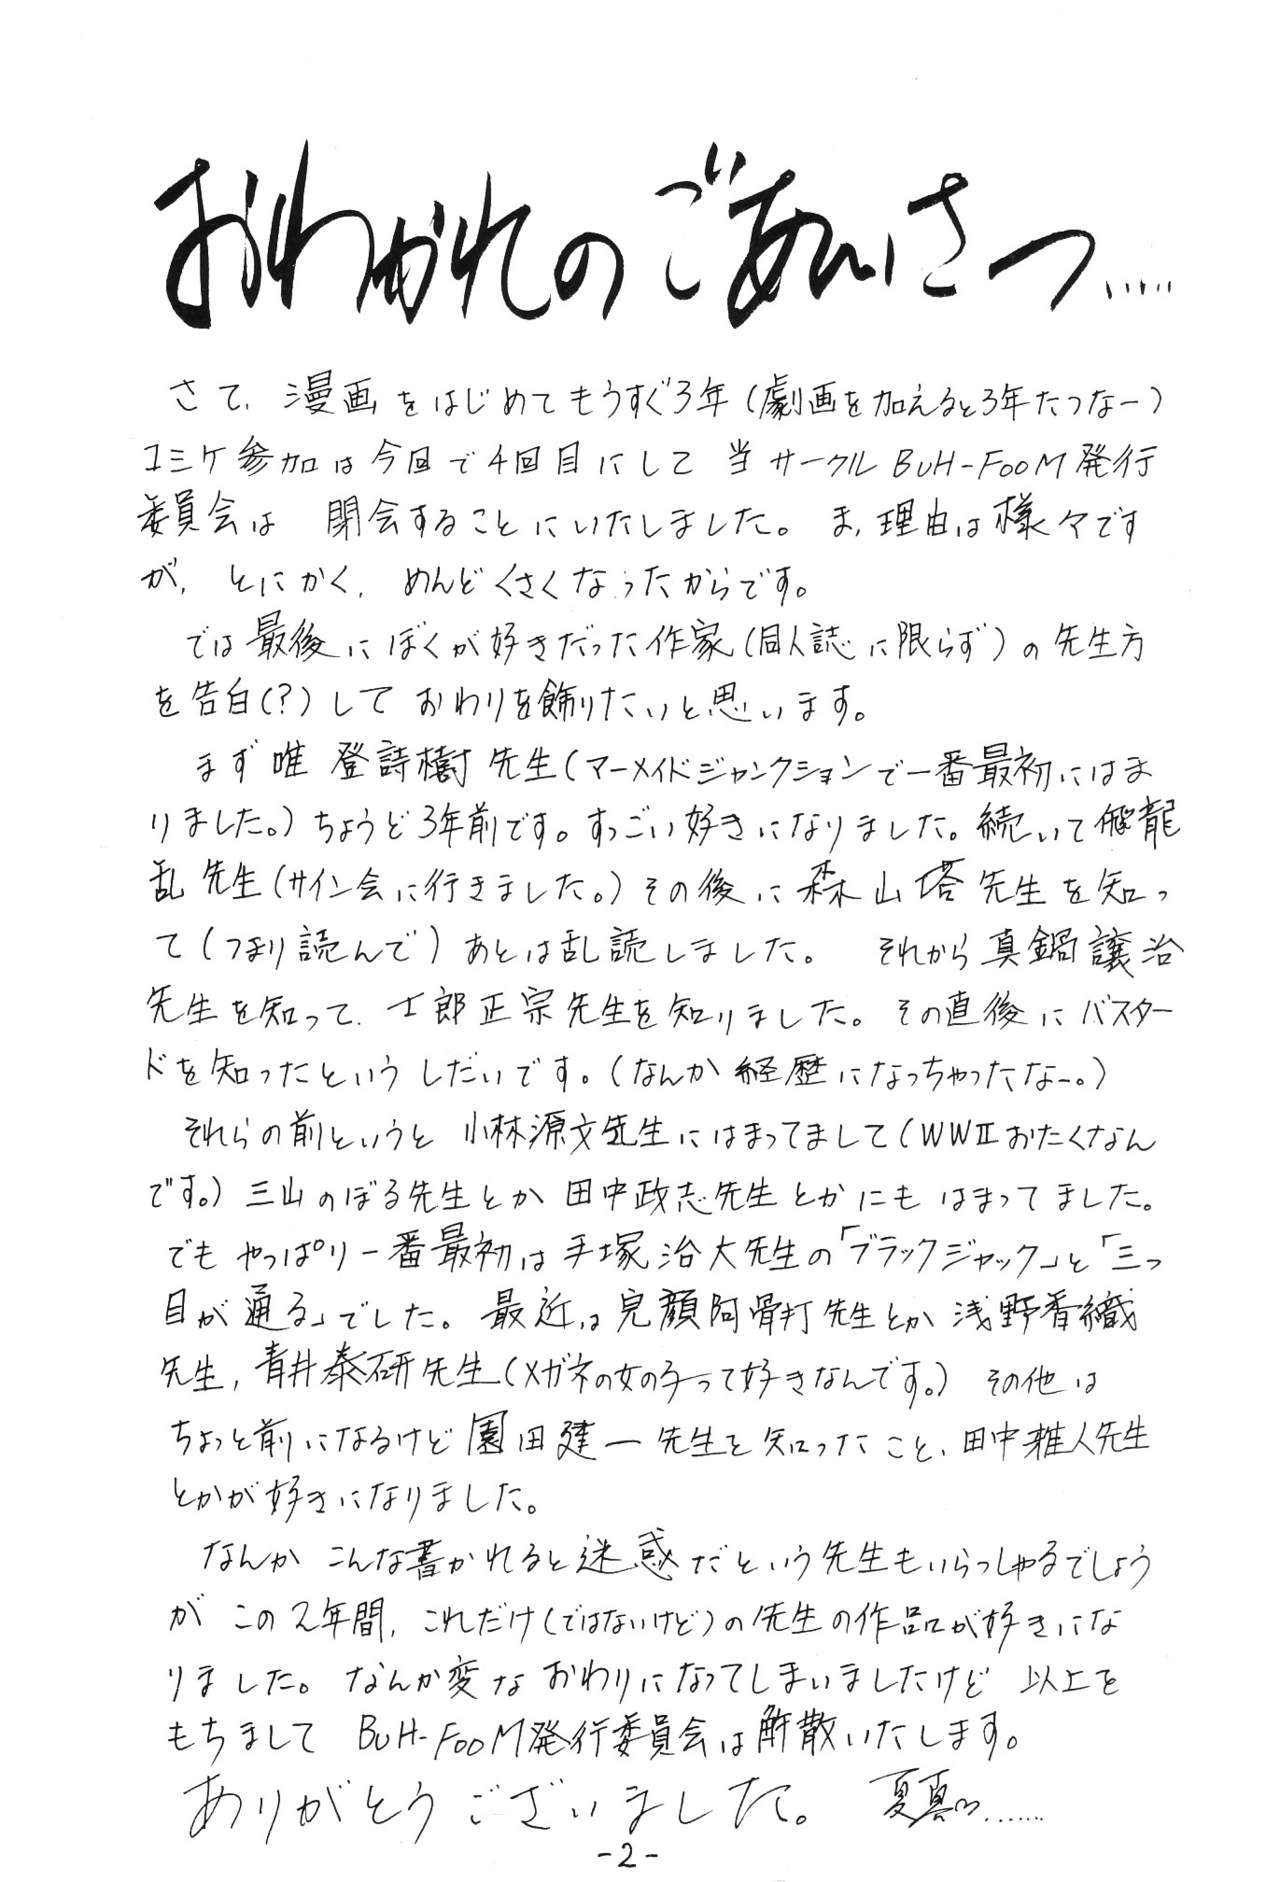 おわかれのごあいさつ.....
さて、漫画をはじめてもうすぐ3年(劇画を加えると3年たつなー)
コミケ参加は今回で4回目にして 当サークルBUH-FOOM発行
委員会は 閉会することにいたしました。ま、理由は様々です
が、とにかく、めんどくさくなったからです。
では最後にぼくが好きだった作家(同人誌に限らず)の先生方
を告白(?)して おわりを飾りたいと思います。
まず唯 登詩樹先生(マーメイドジャンクションで一番最初にはま
りました。)ちょうど3年前です。すっごい好きになりました。続いて飛龍
乱先生(サイン会に行きました。)その後に森山塔先生を知っ
て(つまり読んで)あとは乱読しました。 それから真鍋譲治
先生を知って、士郎正宗先生を知りました。その直後にバスター
ドを知ったというしだいです。(なんか経歴になっちゃったなー。)
それらの前というと 小林源文先生にはまってまして(WWⅡおたくなん
です。)三山のぼる先生とか 田中政志先生とかにもはまってました。
でもやっぱり一番最初は手塚治大先生の「ブラックジャック」と「三つ
目が通る」でした。最近は児顔阿骨打先生とか浅野香織
先生,青井泰研先生(メガネの女の子って好きなんです。)その他は
ちょっと前になるけど園田建一先生を知ったこと、田中雅人先生
とかが好きになりました。
なんか こんな書かれると迷惑だという先生もいらっしゃるでしょう
が この2年間,これだけ(ではないけど)の先生の作品が好きにな
りました。なんか変なおわりになってしまいましたけど 以上を
もちまして BUH-FOOM発行委員会は解散いたします。
ありがとうございました。 夏真......
-2-